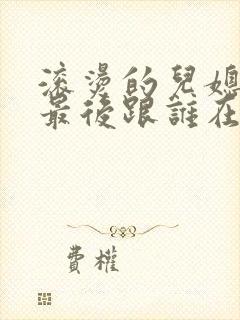 滚燙的兒媳
最後跟誰在
費權